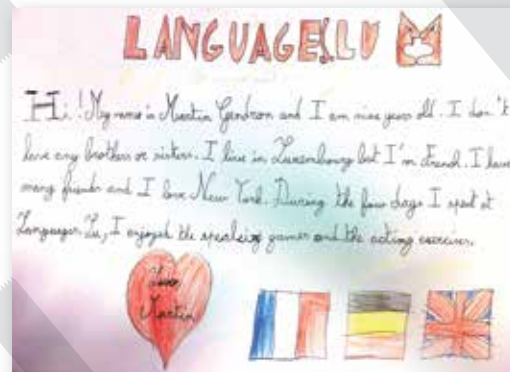 LANGUAGES.LU
Hi! My name is Martin Gendron and I am nine years old. I don't
have any brothers or sisters. I live in Luxembourg but I'm French. I have
many friends and I love New York. During the four days I spent at
Languages.Lu, I enjoyed the speaking games and the acting exercises.
Love
Martin